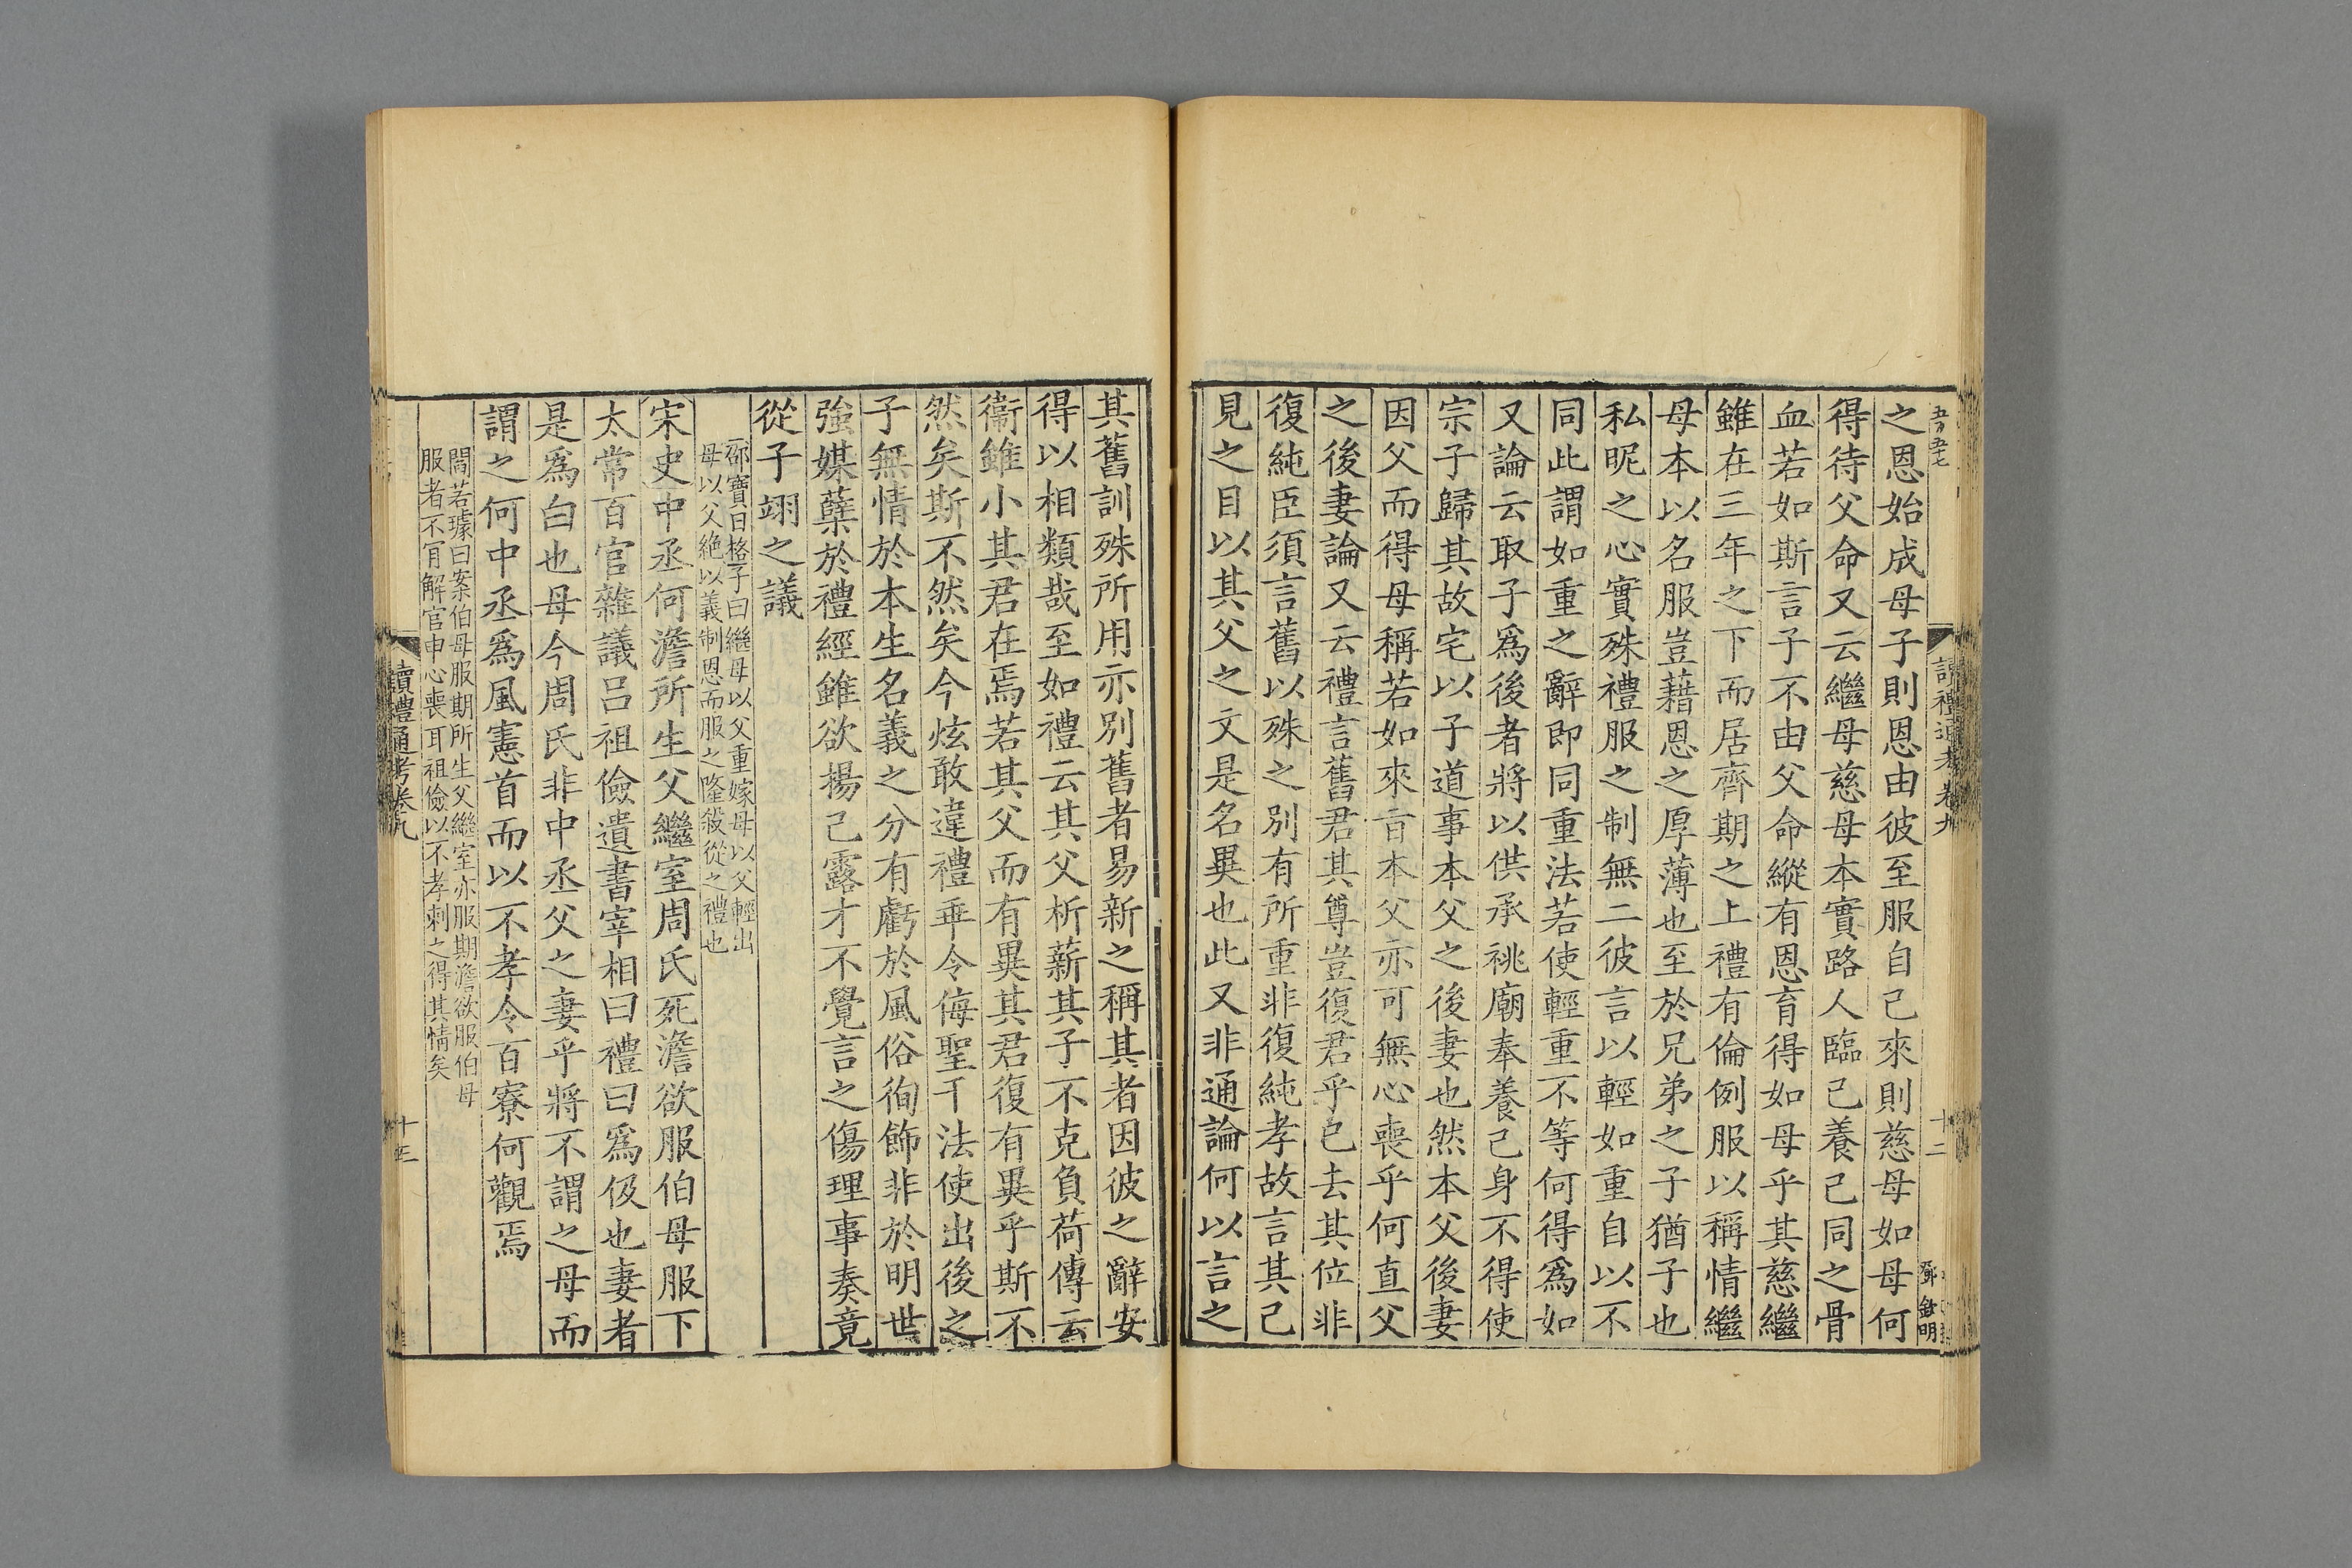 讀禮通考卷九
十二
之恩始成母子則恩由彼至服自己來則慈母如母何
得待父命又云繼母慈母本實路人臨己養己同之骨
血若如斯言子不由父命縱有恩育得如母乎其慈繼
雖在三年之下而居齊期之上禮有倫例服以稱情繼
母本以名服豈藉恩之厚薄也至於兄弟之子猶子也
私昵之心實殊禮服之制無二彼言以輕如重自以不
同此謂如重之辭即同重法若使輕重不等何得爲如
又論云取子爲後者將以供承祧廟奉養己身不得使
宗子歸其故宅以子道事本父之後妻也然本父後妻
因父而得母稱若如來旨本父亦可無心喪乎何直父
之後妻論又云禮言舊君其尊豈復君乎已去其位非
復純臣須言舊以殊之別有所重非復純孝故言其己
見之目以其父之文是名異也此又非通論何以言之
其舊訓殊所用亦別舊者易新之稱其者因彼之辭安
得以相類哉至如禮云其父析薪其子不克負荷傳云
衞雖小其君在焉若其父而有異其君復有異乎斯不
然矣斯不然矣今炫敢違禮乖令侮聖干法使出後之
子無情於本生名義之分有虧於風俗徇飾非於明世
強媒蘖於禮經雖欲揚己露才不覺言之傷理事奏竟
從子翊之議
邵寶曰格子曰繼母以父重嫁母以父輕出
母以父絶以義制恩而服之隆殺從之禮也
宋史中丞何澹所生父繼室周氏死澹欲服伯母服下
太常百官雜議吕祖儉遺書宰相曰禮曰爲伋也妻者
是爲白也母今周氏非中丞父之妻乎將不謂之母而
謂之何中丞爲風憲首而以不孝令百寮何觀焉
閻若璩曰案伯母服期所生父繼室亦服期澹欲服伯母
服者不肎解官申心喪耳祖儉以不孝刺之得其情矣
讀禮通考卷九
十三